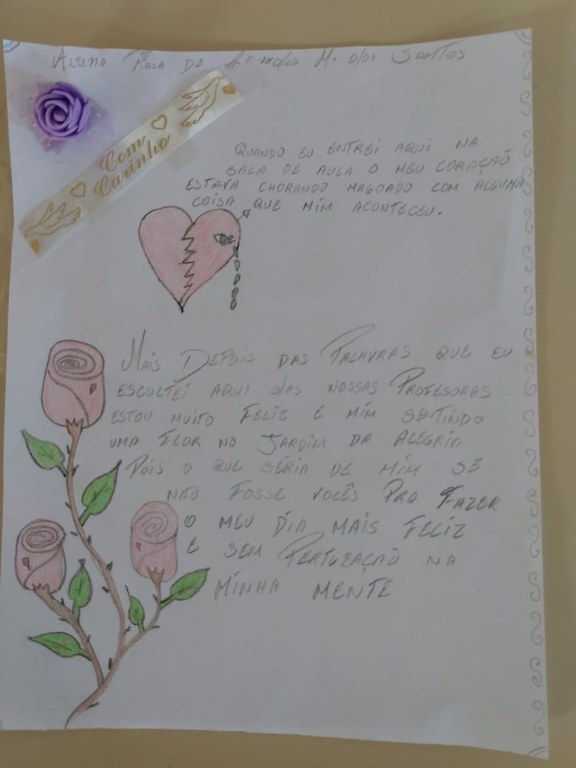 Rosa de M. dos Santos
Com
Carinho
QUANDO EU ENTREI AQUI NA
SALA DE AULA O MEU CORAÇÃO
ESTAVA CHORANDO MAGOADO COM ALGUMA
COISA QUE MIM ACONTECEU.
MAIS DEPOIS DAS PALAVRAS QUE EU
ESCULTEI AQUI DAS NOSSAS PROFESORAS
ESTOU MUITO FELIZ E MIM SENTINDO
UMA FLOR NO JARDIM DA ALEGRIA
POIS O QUE SERIA DE MIM SE
NÃO FOSSE VOCÊS PRO FAZER
O MEU DIA MAIS FELIZ
E SEM PERTUBAÇÃO NA
MINHA MENTE